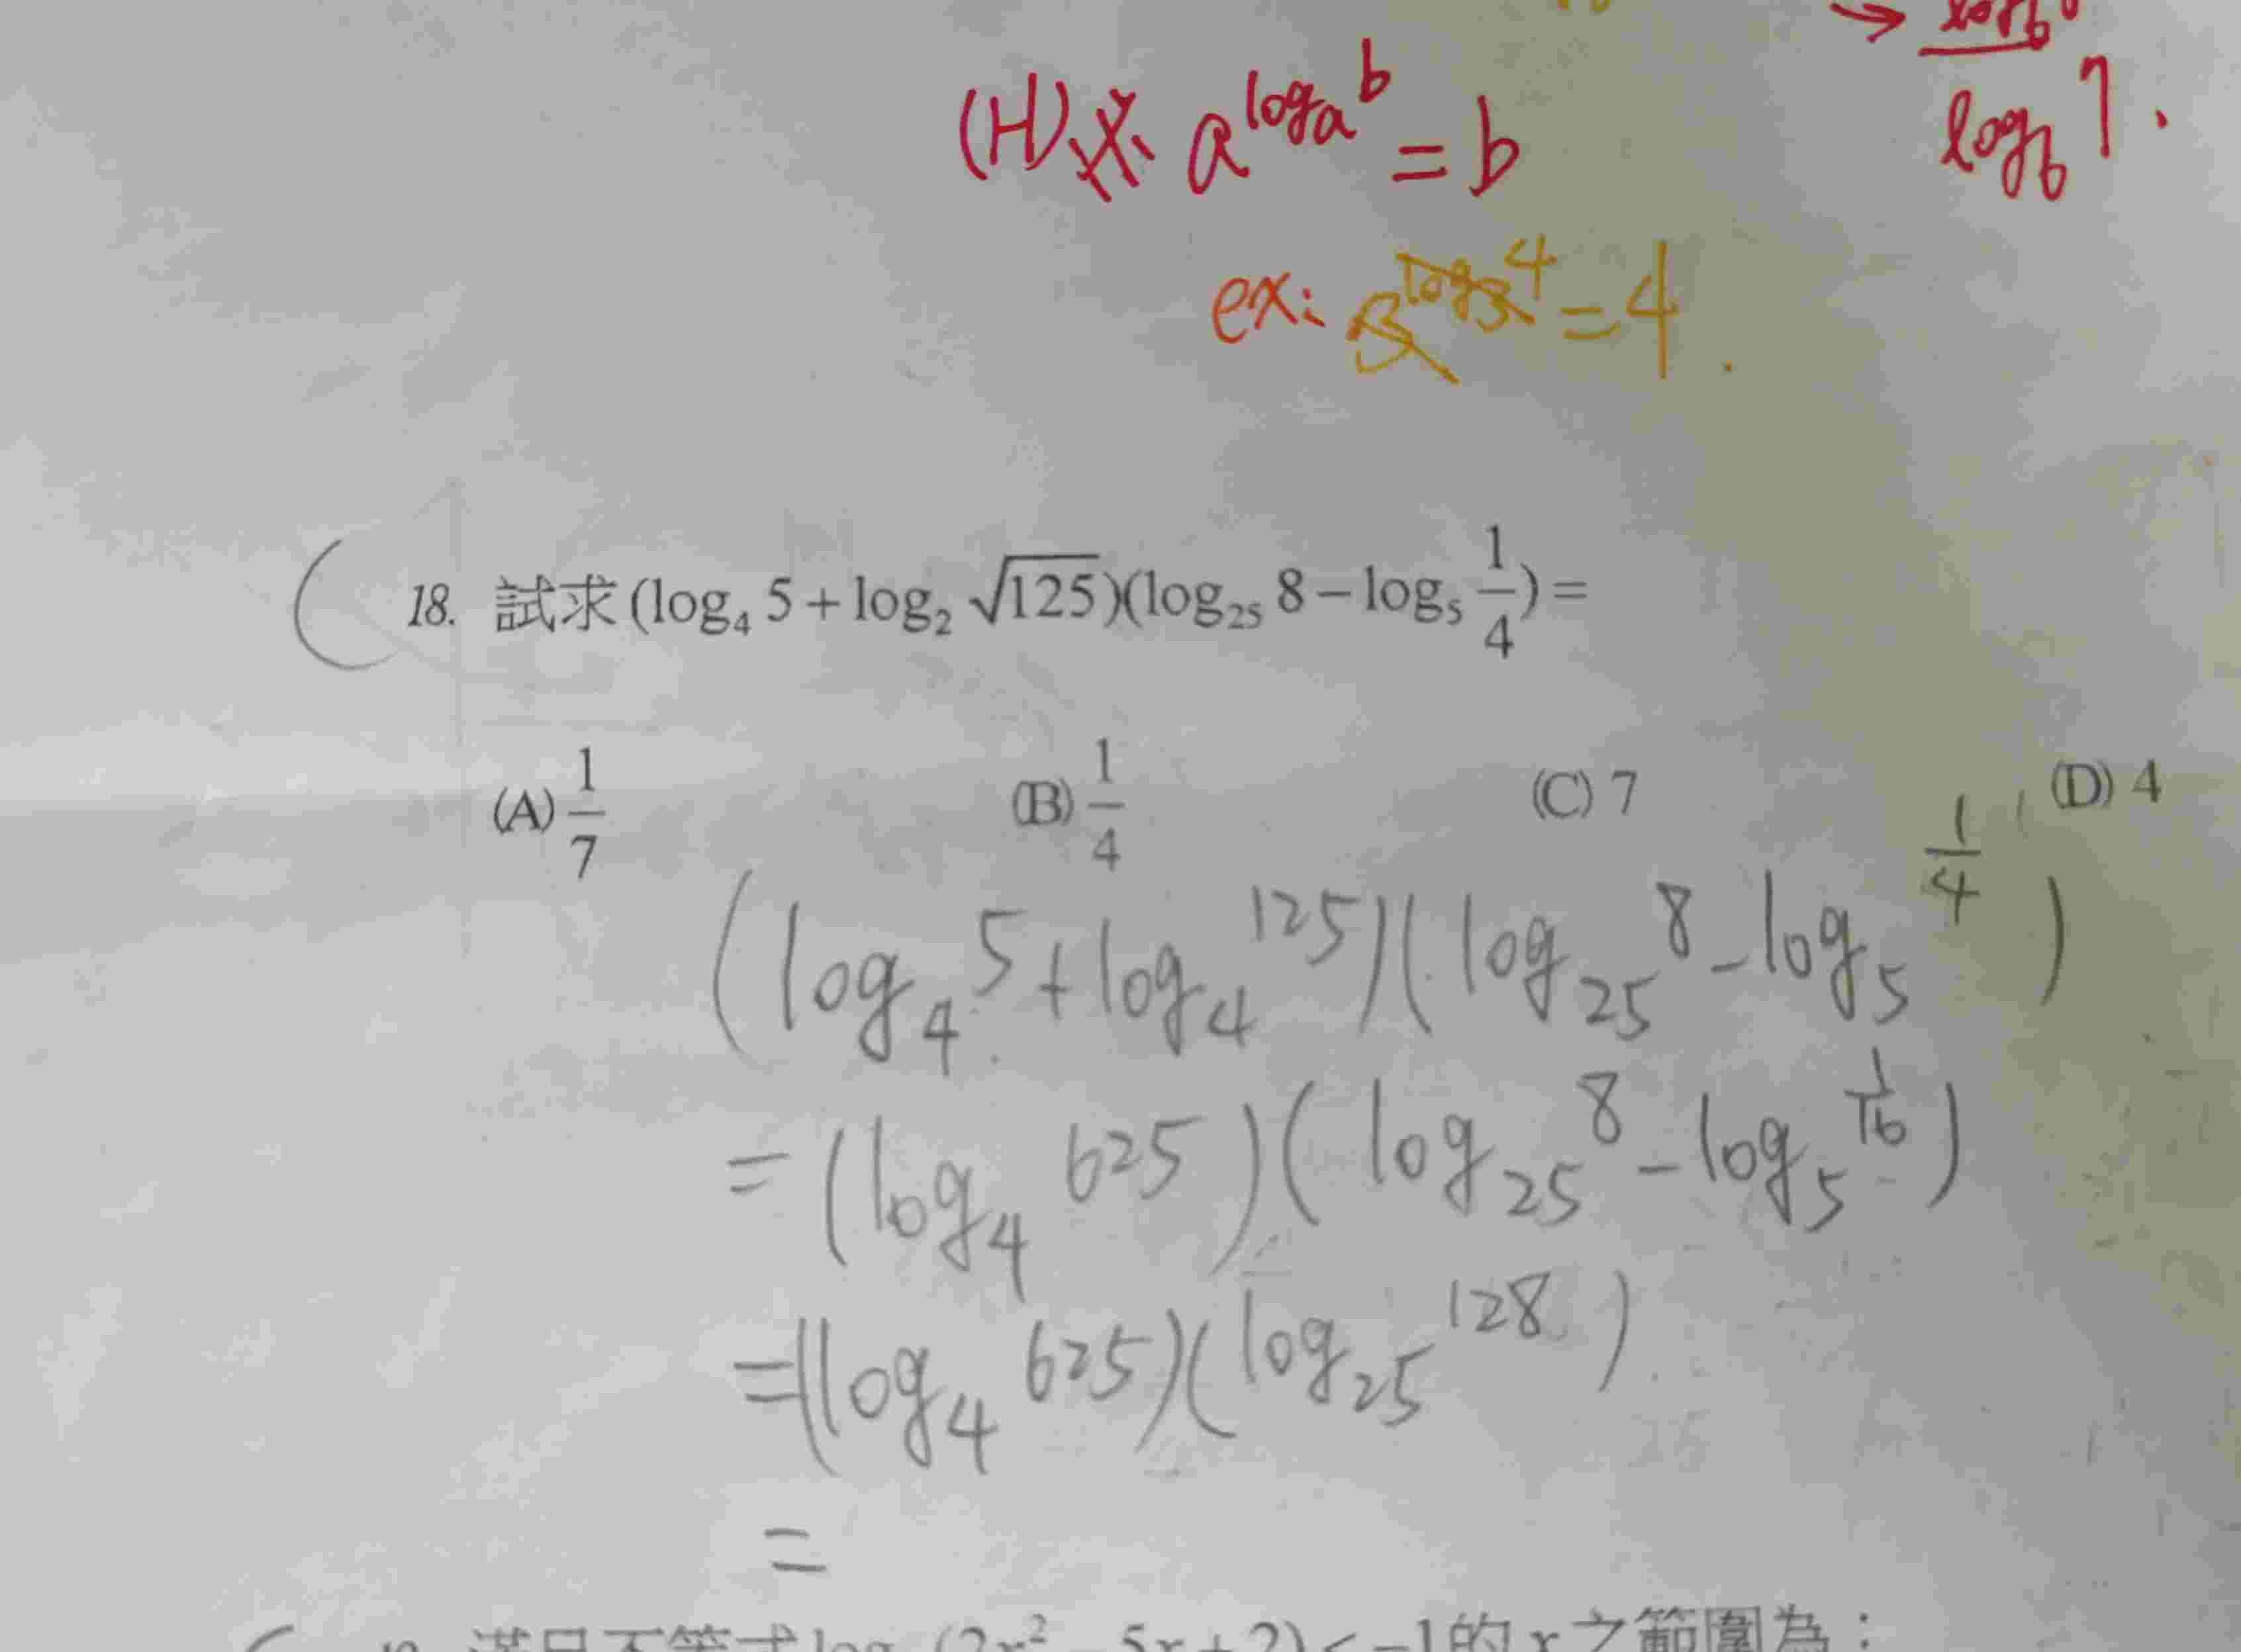 (H)※ a^{log_a b} = b
log_b 7.
ex: 3^{log_3 4} = 4.
18. 試求(log₄ 5 + log₂ √125)(log₂₅ 8 − log₅ 1/4) =
(A) 1/7 (B) 1/4 (C) 7 (D) 4
(log₄ 5 + log₄ 125)(log₂₅ 8 − log₅ 1/4)
= (log₄ 625)(log₂₅ 8 − log₅ 1/16)
= (log₄ 625)(log₂₅ 128)
=
滿足不等式 log (2x² − 5x + 2) < −1的 x 之範圍為：